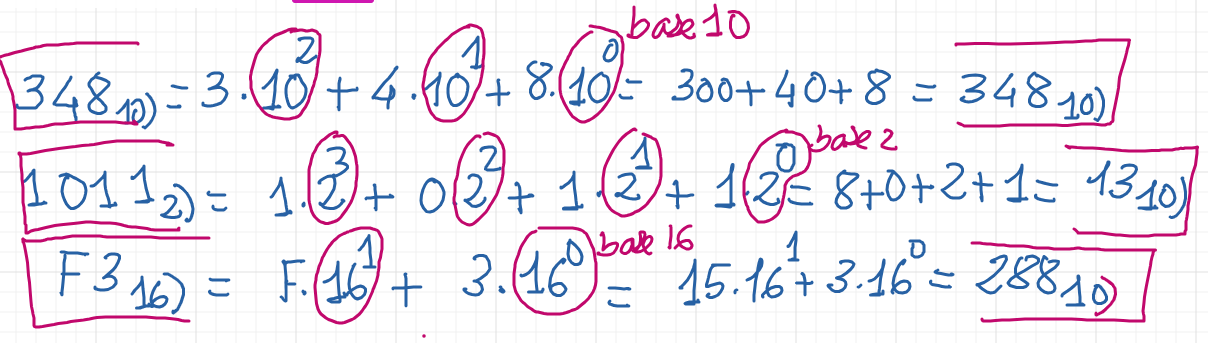 base 10
348₁₀₎ = 3·10² + 4·10¹ + 8·10⁰ = 300+40+8 = 348₁₀₎
base 2
1011₂₎ = 1·2³ + 0 2² + 1·2¹ + 1·2⁰ = 8+0+2+1 = 13₁₀₎
base 16
F3₁₆₎ = F·16¹ + 3·16⁰ = 15·16¹ + 3·16⁰ = 288₁₀₎